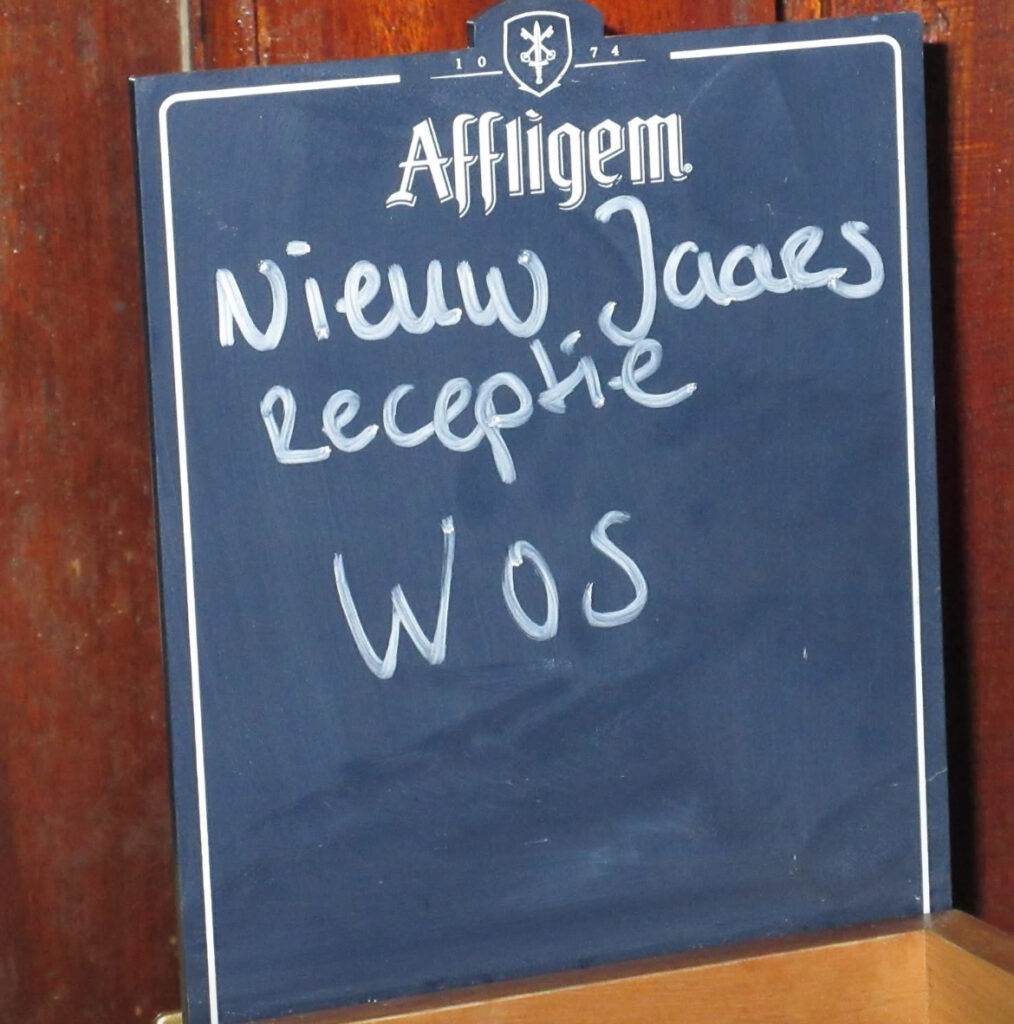 1074
Affligem
Nieuw Jaars
Receptie
WOS